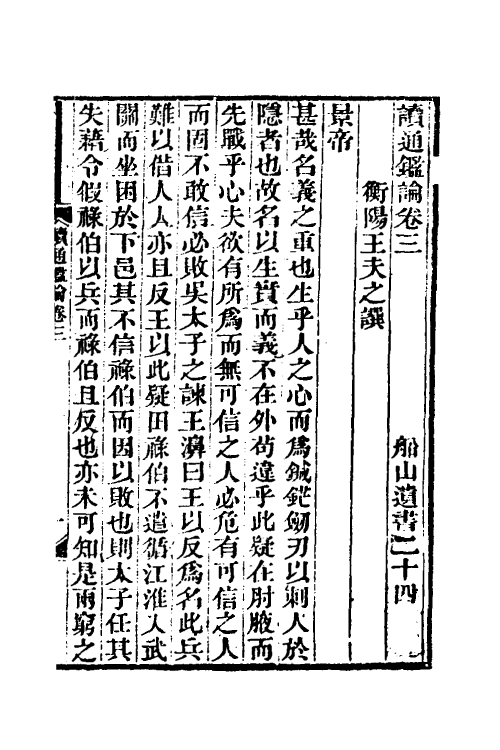 讀通鑑論卷三 船山遺書二十四
衡陽王夫之譔
景帝
甚哉名義之重也生乎人之心而爲鍼鋩劒刃以刺人於
隱者也故名以生實而義不在外苟違乎此疑在肘腋而
先戰乎心夫欲有所爲而無可信之人必危有可信之人
而固不敢信必敗吳太子之諫王濞曰王以反爲名此兵
難以借人人亦且反王以此疑田祿伯不遣循江淮入武
關而坐困於下邑其不信祿伯而因以敗也則太子任其
失藉令假祿伯以兵而祿伯且反也亦未可知是兩窮之
讀通鑑論卷三 一